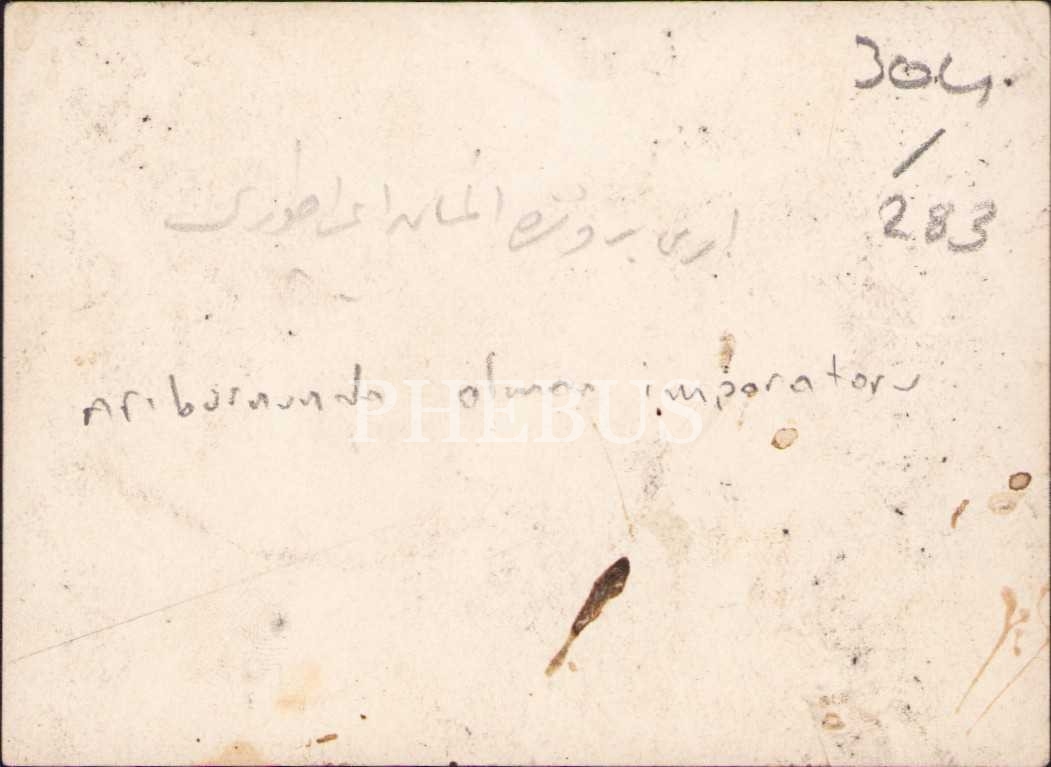 304.
/
283
اری بروننده المان ایمپراطوری
arıburnunda alman imparatoru
PHEBUS